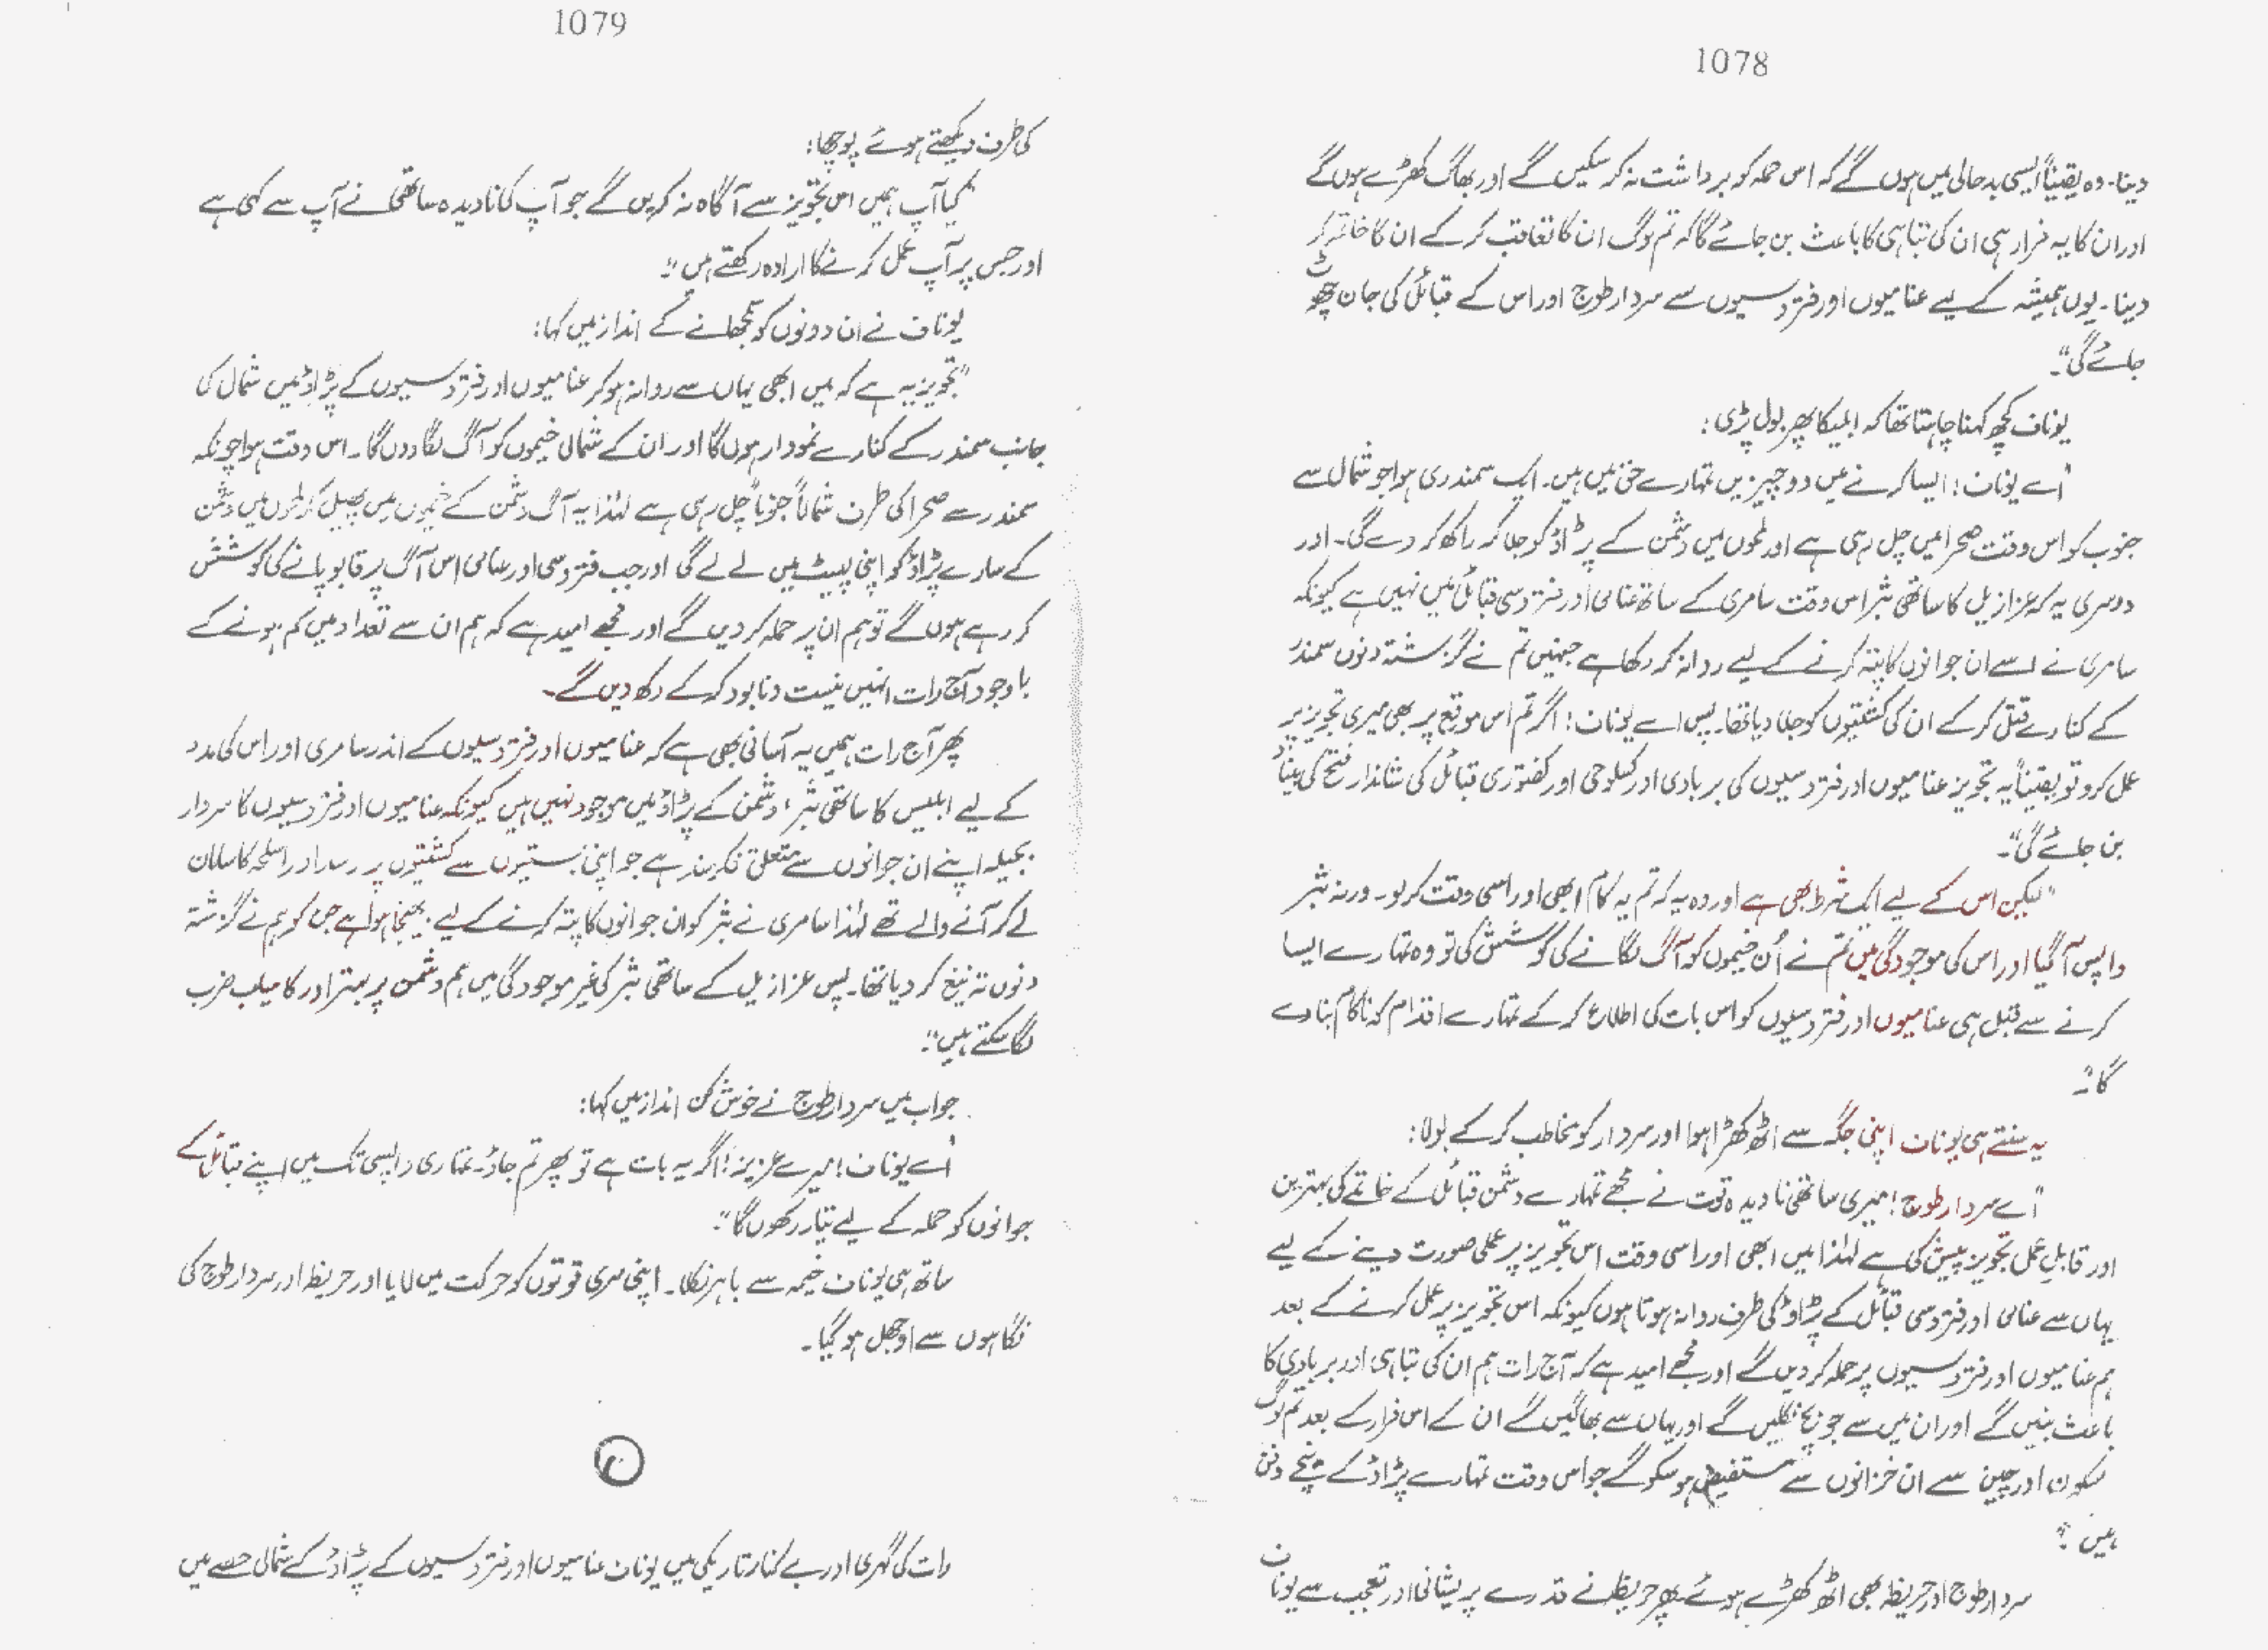 1078
دینا۔ وہ یقیناً ایسی بدحالی میں ہوں گے کہ اس حملہ کو برداشت نہ کر سکیں گے اور بھاگ کھڑے ہوں گے
اور ان کا یہ فرار ہی ان کی تباہی کا باعث بن جائے گا کہ تم لوگ ان کا تعاقب کر کے ان کا خاتمہ کر
دینا۔ یوں ہمیشہ کے لیے عنامیوں اور فتردسیوں سے سردار طوج اور اس کے قبائل کی جان چھوٹ
جائے گی"۔
یوناف کچھ کہنا چاہتا تھا کہ ابلیکا پھر بول پڑی :
"اے یوناف! ایسا کرنے میں دو چیزیں تمہارے حق میں ہیں۔ ایک سمندری ہوا جو شمال سے
جنوب کو اس وقت صحرا میں چل رہی ہے اور لمحوں میں دشمن کے پڑاؤ کو جلا کر راکھ کر دے گی۔ اور
دوسری یہ کہ عزازیل کا ساتھی ثبر اس وقت سامری کے ساتھ عنامی اور فتردسی قبائل میں نہیں ہے کیونکہ
سامری نے اسے ان جوانوں کا پتہ کرنے کے لیے روانہ کر رکھا ہے جنہیں تم نے گزشتہ دنوں سمندر
کے کنارے قتل کر کے ان کی کشتیوں کو جلا دیا تھا۔ پس اے یوناف! اگر تم اس موقع پر بھی میری تجویز پر
عمل کرو تو یقیناً یہ تجویز عنامیوں اور فتردسیوں کی بربادی اور کسلوحی اور کفتوری قبائل کی شاندار فتح کی بنیاد
بن جائے گی"۔
"لیکن اس کے لیے ایک شرط بھی ہے اور وہ یہ کہ تم یہ کام ابھی اور اسی وقت کر لو۔ ورنہ ثبر
واپس آ گیا اور اس کی موجودگی میں تم نے اُن خیموں کو آگ لگانے کی کوشش کی تو وہ تمہارے ایسا
کرنے سے قبل ہی عنامیوں اور فتردسیوں کو اس بات کی اطلاع کر کے تمہارے اقدام کو ناکام بنا دے
گا"۔
یہ سنتے ہی یوناف اپنی جگہ سے اٹھ کھڑا ہوا اور سردار کو مخاطب کر کے بولا :
"اے سردار طوج! میری ساتھی نادیدہ قوت نے مجھے تمہارے دشمن قبائل کے خاتمے کی بہترین
اور قابلِ عمل تجویز پیش کی ہے لہٰذا میں ابھی اور اسی وقت اس تجویز پر عملی صورت دینے کے لیے
یہاں سے عنامی اور فتردسی قبائل کے پڑاؤ کی طرف روانہ ہوتا ہوں کیونکہ اس تجویز پر عمل کرنے کے بعد
ہم عنامیوں اور فتردسیوں پر حملہ کر دیں گے اور مجھے امید ہے کہ آج رات ہم ان کی تباہی اور بربادی کا
باعث بنیں گے اور ان میں سے جو بچ نکلیں گے اور یہاں سے بھاگیں گے ان کے اس فرار کے بعد تم لوگ
سکون اور چین سے ان خزانوں سے مستفیض ہو سکو گے جو اس وقت تمہارے پڑاؤ کے نیچے دفن
ہیں"۔
سردار طوج اور حریظ بھی اٹھ کھڑے ہوئے پھر حریظ نے قدرے پریشانی اور تعجب سے یوناف
1079
کی طرف دیکھتے ہوئے پوچھا :
"کیا آپ ہمیں اس تجویز سے آگاہ نہ کریں گے جو آپ کی نادیدہ ساتھی نے آپ سے کہی ہے
اور جس پر آپ عمل کرنے کا ارادہ رکھتے ہیں"۔
یوناف نے ان دونوں کو سمجھانے کے انداز میں کہا :
"تجویز یہ ہے کہ میں ابھی یہاں سے روانہ ہو کر عنامیوں اور فتردسیوں کے پڑاؤ میں شمال کی
جانب سمندر کے کنارے نمودار ہوں گا اور ان کے شمالی خیموں کو آگ لگا دوں گا۔ اس وقت ہوا چونکہ
سمندر سے صحرا کی طرف شمالاً جنوباً چل رہی ہے لہٰذا یہ آگ دشمن کے خیموں میں پھیل کر لمحوں میں دشمن
کے سارے پڑاؤ کو اپنی لپیٹ میں لے لے گی اور جب فتردسی اور عنامی اس آگ پر قابو پانے کی کوشش
کر رہے ہوں گے تو ہم ان پر حملہ کر دیں گے اور مجھے امید ہے کہ ہم ان سے تعداد میں کم ہونے کے
باوجود آج رات انہیں نیست و نابود کر کے رکھ دیں گے۔
پھر آج رات ہمیں یہ آسانی بھی ہے کہ عنامیوں اور فتردسیوں کے اندر سامری اور اس کی مدد
کے لیے ابلیس کا ساتھی ثبر، دشمن کے پڑاؤ میں موجود نہیں ہیں کیونکہ عنامیوں اور فتردسیوں کا سردار
بحیلہ اپنے ان جوانوں سے متعلق فکرمند ہے جو اپنی بستیوں سے کشتیوں پر رسد اور اسلحہ کا سامان
لے کر آنے والے تھے لہٰذا سامری نے ثبر کو ان جوانوں کا پتہ کرنے کے لیے بھیجا ہوا ہے جن کو ہم نے گزشتہ
دنوں تہ تیغ کر دیا تھا۔ پس عزازیل کے ساتھی ثبر کی غیر موجودگی میں ہم دشمن پر بہتر اور کامیاب ضرب
لگا سکتے ہیں"۔
جواب میں سردار طوج نے خوش کن انداز میں کہا :
"اے یوناف! میرے عزیز! اگر یہ بات ہے تو پھر تم جاؤ۔ تمہاری واپسی تک میں اپنے قبائل کے
جوانوں کو حملہ کے لیے تیار رکھوں گا"۔
ساتھ ہی یوناف خیمہ سے باہر نکلا۔ اپنی سری قوتوں کو حرکت میں لایا اور حریظ اور سردار طوج کی
نگاہوں سے اوجھل ہو گیا۔
رات کی گہری اور بے کنار تاریکی میں یوناف عنامیوں اور فتردسیوں کے پڑاؤ کے شمالی حصے میں